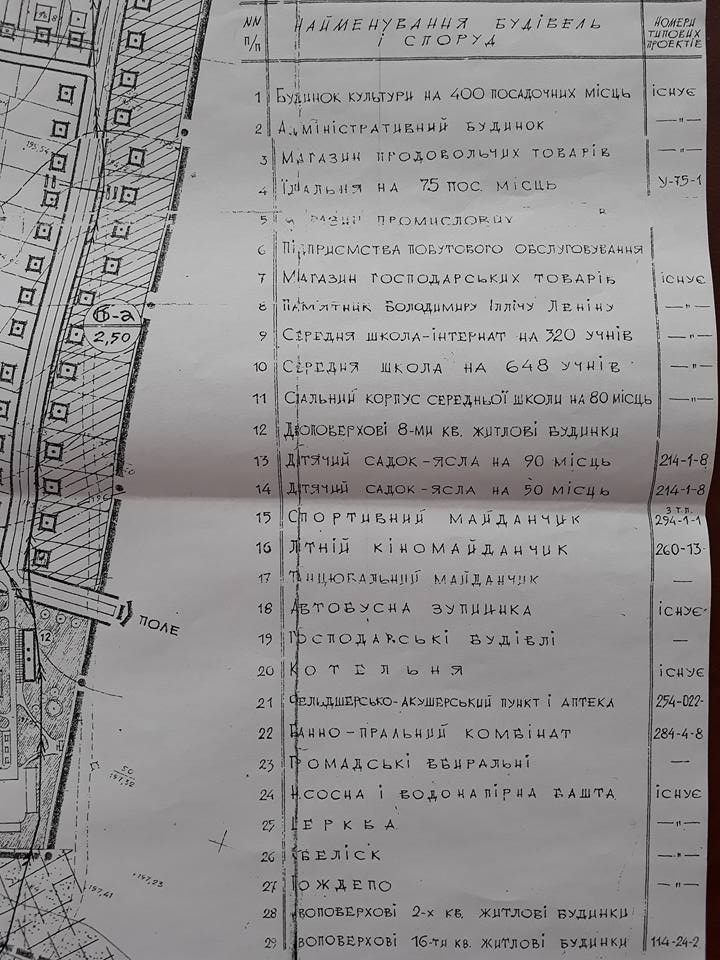 NN п/п НАЙМЕНУВАННЯ БУДІВЕЛЬ І СПОРУД НОМЕРИ ТИПОВИХ ПРОЕКТІВ
1 БУДИНОК КУЛЬТУРИ НА 400 ПОСАДОЧНИХ МІСЦЬ ІСНУЄ
2 АДМІНІСТРАТИВНИЙ БУДИНОК —"—
3 МАГАЗИН ПРОДОВОЛЬЧИХ ТОВАРІВ —"—
4 ЇДАЛЬНЯ НА 75 ПОС. МІСЦЬ У-75-1
5 ПРОМИСЛОВИХ
6 ПІДПРИЄМСТВА ПОБУТОВОГО ОБСЛУГОВУВАННЯ
7 МАГАЗИН ГОСПОДАРСЬКИХ ТОВАРІВ ІСНУЄ
8 ПАМ'ЯТНИК ВОЛОДИМИРУ ІЛЛІЧУ ЛЕНІНУ —"—
9 СЕРЕДНЯ ШКОЛА-ІНТЕРНАТ НА 320 УЧНІВ —"—
10 СЕРЕДНЯ ШКОЛА НА 648 УЧНІВ —"—
11 СПАЛЬНИЙ КОРПУС СЕРЕДНЬОЇ ШКОЛИ НА 80 МІСЦЬ —"—
12 ДВОПОВЕРХОВІ 8-МИ КВ. ЖИТЛОВІ БУДИНКИ
13 ДИТЯЧИЙ САДОК-ЯСЛА НА 90 МІСЦЬ 214-1-8
14 ДИТЯЧИЙ САДОК-ЯСЛА НА 50 МІСЦЬ 214-1-8
15 СПОРТИВНИЙ МАЙДАНЧИК З Т.П. 294-1-1
16 ЛІТНІЙ КІНОМАЙДАНЧИК 260-13-
17 ТАНЦЮВАЛЬНИЙ МАЙДАНЧИК —
18 АВТОБУСНА ЗУПИНКА ІСНУЄ
19 ГОСПОДАРСЬКІ БУДІВЛІ —
20 КОТЕЛЬНЯ ІСНУЄ
21 ФЕЛЬДШЕРСЬКО-АКУШЕРСЬКИЙ ПУНКТ І АПТЕКА 254-022-
22 БАННО-ПРАЛЬНИЙ КОМБІНАТ 284-4-8
23 ГРОМАДСЬКІ ВБИРАЛЬНІ —
24 НАСОСНА І ВОДОНАПІРНА БАШТА ІСНУЄ
25 ЦЕРКВА —"—
26 ОБЕЛІСК —"—
27 ПОЖДЕПО —"—
28 ДВОПОВЕРХОВІ 2-Х КВ. ЖИТЛОВІ БУДИНКИ
29 ДВОПОВЕРХОВІ 16-ТИ КВ. ЖИТЛОВІ БУДИНКИ 114-24-2
2,50
ПОЛЕ
12
50
197,52
197,41
197,23